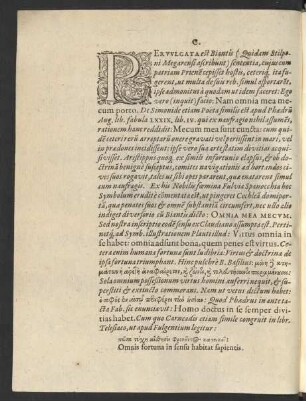 C.
PERVULGATA est Biantis (Quidam Stilpo-
ni Megarensi ascribunt) sententia, cujus cum
patriam Prienē cepisset hostis, ceteriq, ita fu-
gerent, ut multa de suis reb. simul asportarēt,
ipse admonitus à quodam ut idem faceret: Ego
vero (inquit) facio: Nam omnia mea me-
cum porto. De Simonide etiam Poëta similis est apud Phædrū
Aug. lib. fabula XXXIX. lib. IV. qui ex naufragio nihil assumēs,
rationem hanc reddidit: Mecum mea sunt cuncta: cum qui-
dē ceteri ære arrepto
vel prædones incidissent: ipse vero sua arte statim devitias acqui-
sivisset. Aristippus quoq, ex simili infortunio elapsus, & ob do-
ctrinā benignè susceptus, comites navigationis ad
ves suos rogavit, solas sibi opes operarent, quæ enatarent simul
cum naufrago. Ex his Nobilis fœmina Fulvia Spinocchia hoc
Symbolum eruditè concinnavit, ac pingere Cochleā
quā penates suos & omnē substantiā circumferat, nec ullo
indiget diversorio cū Biantis dicto: OMNIA MEA MECVM.
Sed nostra inscriptio eodē sensu ex Claudiano assumpta est. Perti-
nētq, ad Symb. illustrationem Plautinū: Virtus omnia in
se habet: omnia adsunt bona, quem penes est virtus. Ce-
terā enim humana fortunæ sunt ludibria. Virtus & doctrina de
ipsa fortuna triumphant. Hinc pulchrè B. Basilius:
Solam omnem possessionum virtus homini auferri nequit, &
superstiti & extincto commanens. Nam ut vetus dictum habet:
Quod Phædrus in ante ta-
cta Fab. sic enunciat: Homo doctus in se semper divi-
tias habet. Cum quo Carneades etiam similè congruit in lib.
Telesiaco, ut apud Fulgentium legitur:
Omnis fortuna in sensu habitat sapientis.